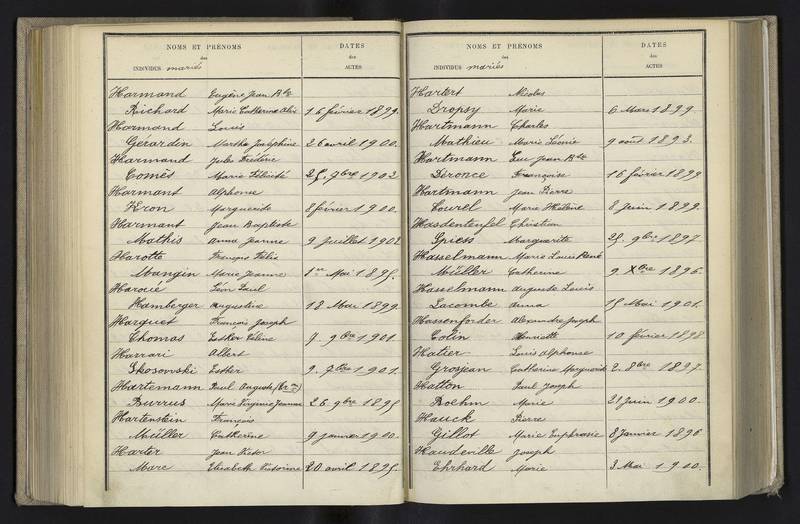 NOMS ET PRÉNOMS
des
INDIVIDUS mariés
DATES
des
ACTES
Harmand Eugène Jean Bte
Richard Marie Catherine 16 février 1899.
Harmand Louis
Gérardin Marthe Joséphine 26 avril 1900.
Harmand Jules Frédéric
Comès Marie Félicité 25. 7bre 1902
Harmant Alphonse
Kron Marguerite 8 février 1900.
Harmant Jean Baptiste
Mathis Anna Jeanne 9 Juillet 1902
Harotte François Félix
Mangin Marie Jeanne 1er Mai 1895.
Haroué Léon Paul
Hamberger Augustine 18 Mai 1899
Harquet François Joseph
Thomas Esther Céline 7. 9bre 1901.
Harrari Albert
Skosowski Esther 9. 7bre 1901.
Hartemann Paul Auguste
Burrus Marie Virginie Jeanne 26 9bre 1895
Hartenstein François
Müller Catherine 9 janvier 1900.
Harter Jean Victor
Marc Elisabeth Victorine 20 avril 1895.
NOMS ET PRÉNOMS
des
INDIVIDUS mariés
DATES
des
ACTES
Hartert Nicolas
Dropsy Marie 6 Mars 1899.
Hartmann Charles
Mathieu Marie Léonie 9 août 1893.
Hartmann Luc Jean Bte
Dironce Françoise 16 février 1899
Hartmann Jean Pierre
Lourel Marie Hélène 8 Juin 1899.
Hasdenteufel Christian
Spiess Marguerite 25. 9bre 1897.
Hasselmann Marie Louis René
Müller Catherine 9 Xbre 1896.
Hasselmann Auguste Louis
Lacombe Anna 15 Mai 1901.
Hassenforder Alexandre Joseph
Colin Henriette 10 février 1898
Hatier Louis Alphonse
Grosjean Catherine Marguerite 2. 8bre 1897.
Hatton Paul Joseph
Boehm Marie 21 Juin 1900.
Hauck Pierre
Gillot Marie Euphrasie 8 Janvier 1896
Haudeville Joseph
Ehrhard Marie 3 Mai 1900.